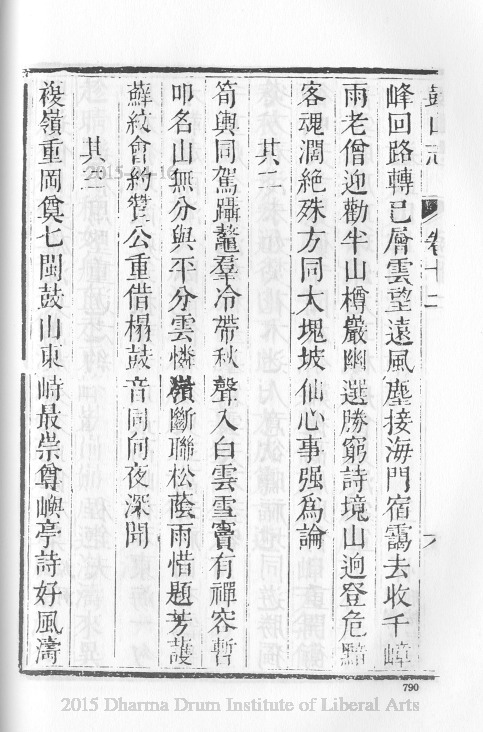 鼓山志 卷十二
峰回路轉已層雲望遠風塵接海門宿靄去收千嶂
雨老僧迎勸半山樽巖幽選勝窮詩境山迥登危黯
客魂濶絶殊方同大塊坡仙心事强爲論
其二
筍輿同駕躡鼇羣冷帶秋聲入白雲雪竇有禪容暫
叩名山無分與平分雲憐嶺斷聯松蔭雨惜題芳護
蘚紋會約贊公重借榻鼓音同向夜深聞
其三
複嶺重岡奠七閩鼓山東峙最崇尊嶼亭詩好風濤
790
2015 Dharma Drum Institute of Liberal Arts